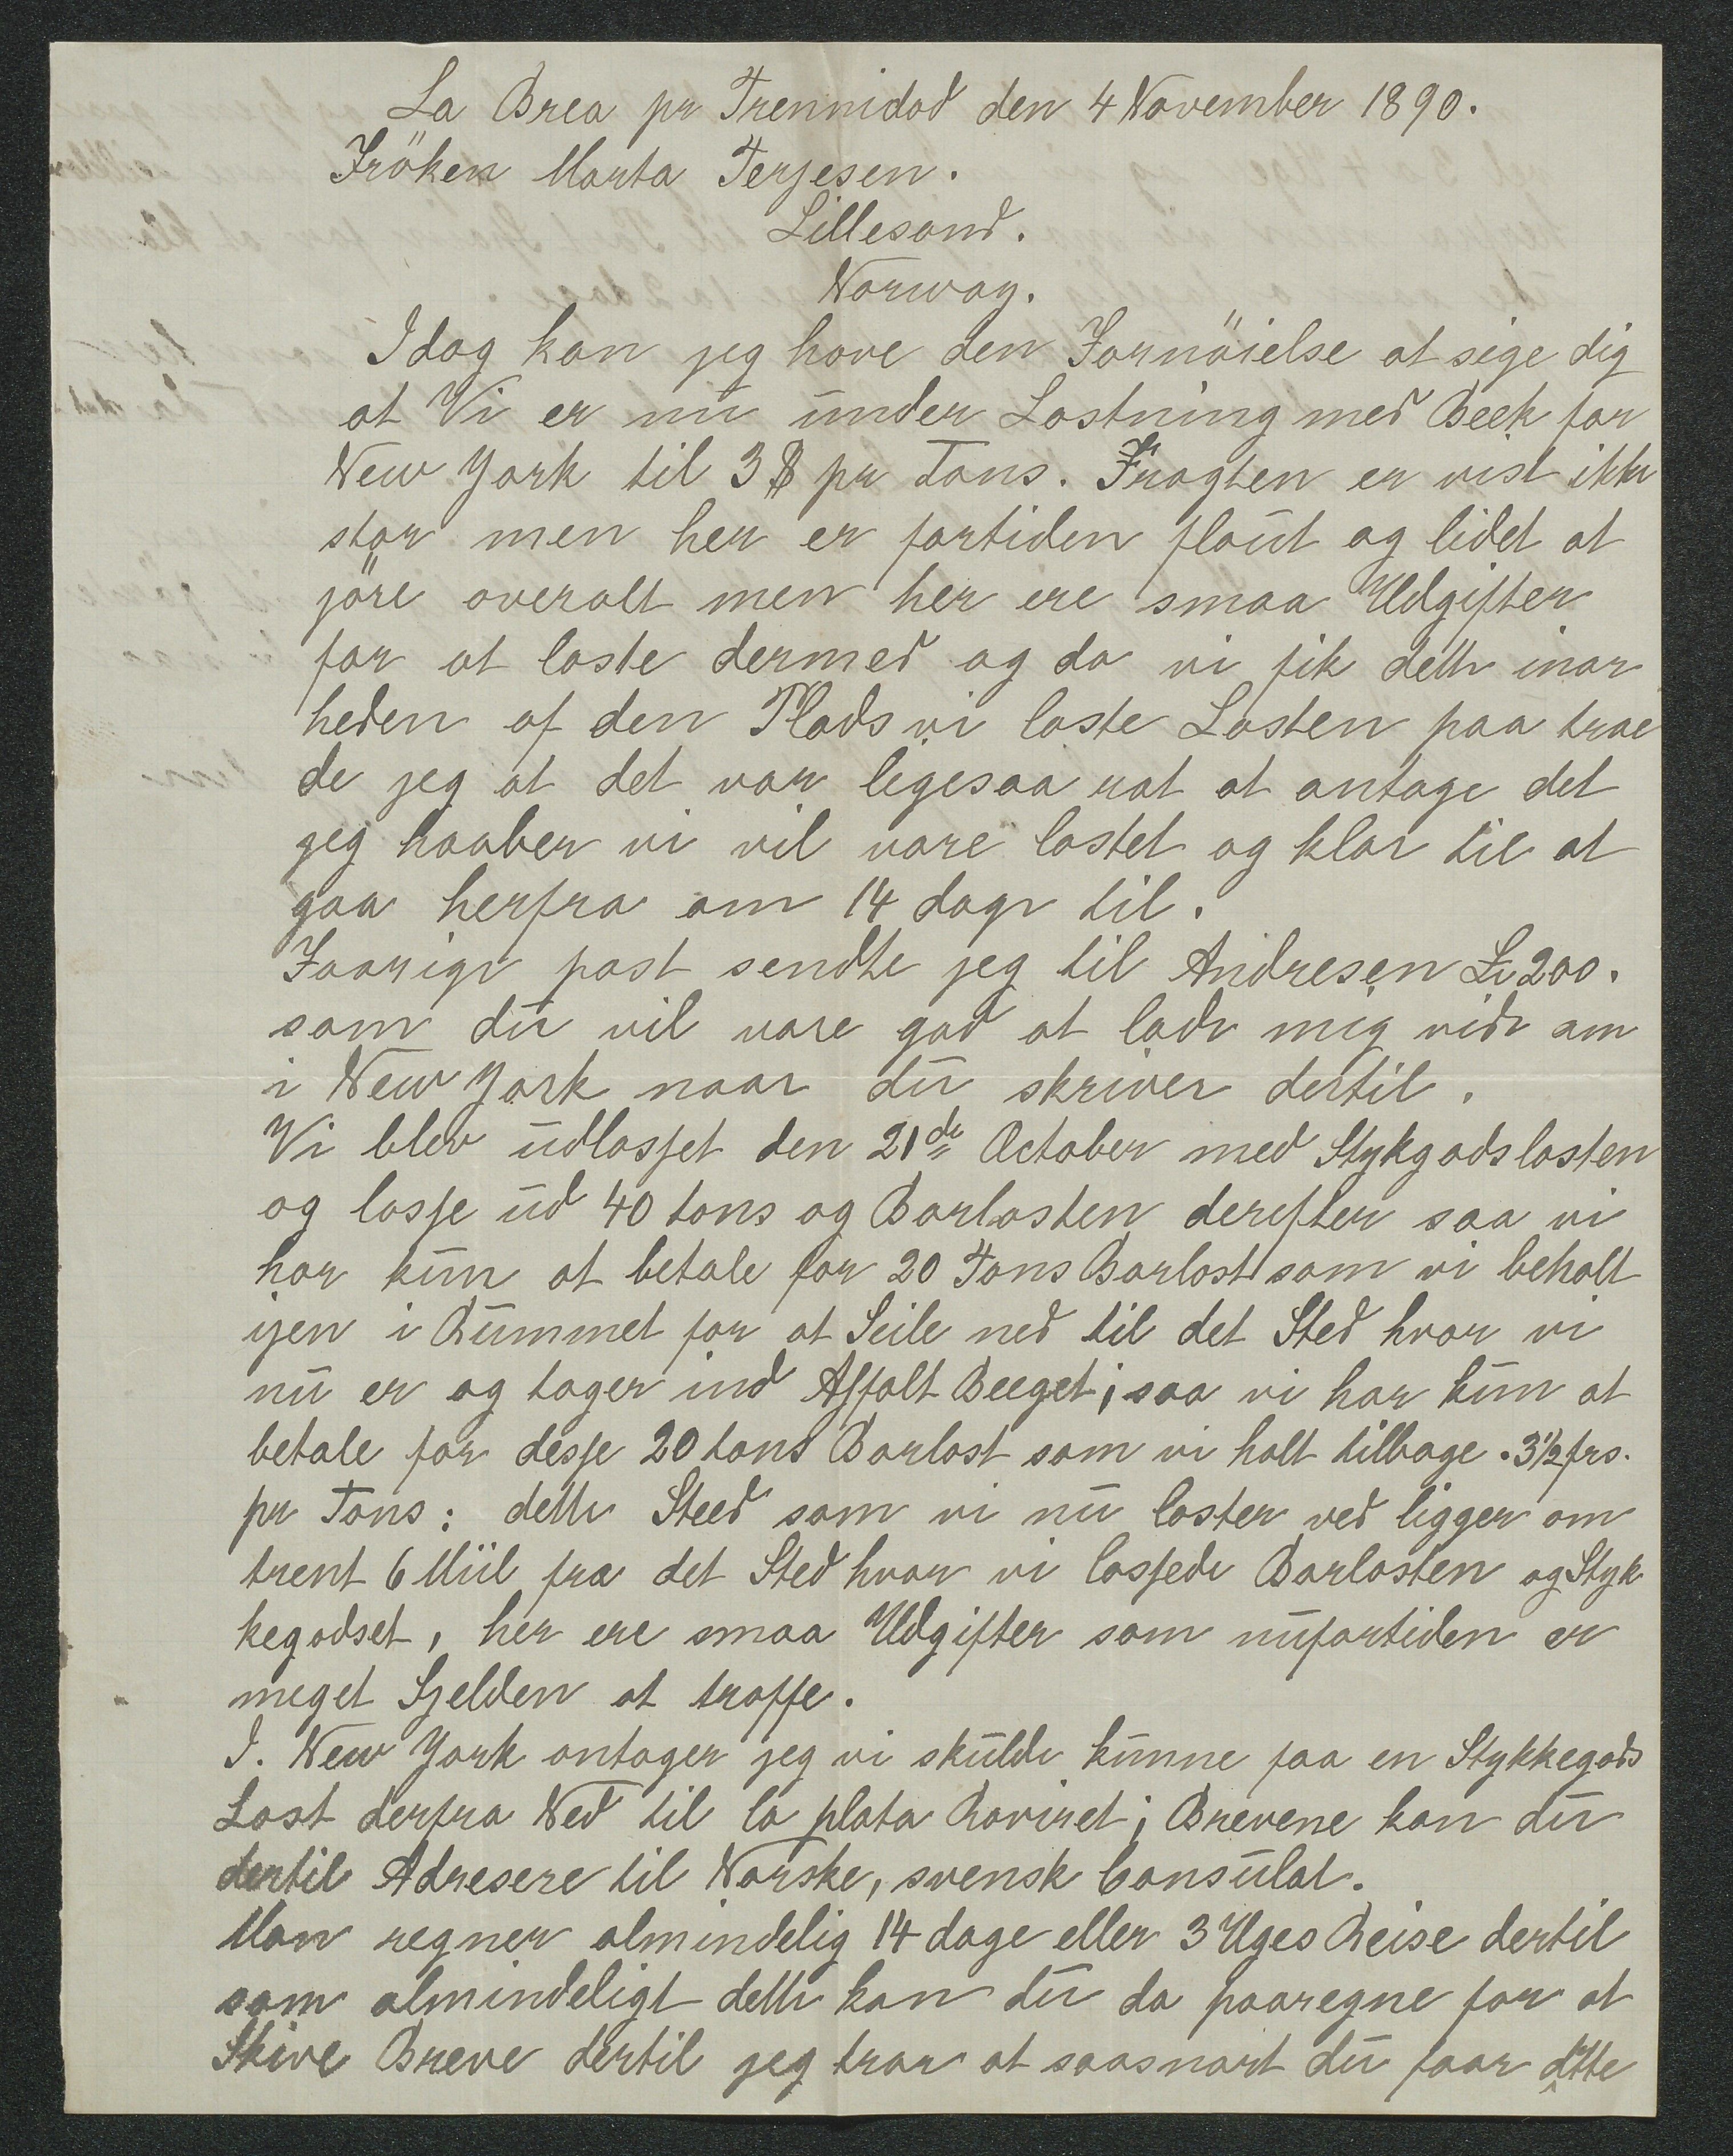 La Brea pr Trennidad den 4 November 1890.
Fröken Marta Terjesen.
Lillesand.
Norway.
Idag kan jeg have den Fornöielse at sige dig
at Vi er nu under Lastning med Beek for
New York til 3 $ pr Tons. Fragten er vist ikke
stor men her er fortiden flaut og lidet at
jöre overalt men her ere smaa Udgifter
for at laste dermed og da vi fik dette inær
heden af den Plads vi loste Lasten paa trae
de jeg at det var ligesaa rat at antage det
jeg haaber vi vil være lastet og klar til at
gaa herfra om 14 dage til.
Faarige post sendte jeg til Andresen L 200.
som du vil være god at lade mig vide om
i New York naar du skriver dertil.
Vi blev udlosset den 21de October med Stykgodslasten
og losse ud 40 tons og Barlasten derefter saa vi
har kun at betale for 20 Tons Barlast som vi beholt
ijen i Rummet for at Seile ned til det Sted hvor vi
nu er og tager ind Asfalt Beeget; saa vi har kun at
betale for desse 20 tons Barlast som vi holt tilbage. 3 1/2 frs.
pr Tons: dette Steed som vi nu laster ved ligger om
trent 6 Miil fra det Sted hvor vi lossede Barlasten og Styk
kegodset, her ere smaa Udgifter som nufortiden er
meget Sjelden at træffe.
I. New York antager jeg vi skulde kunne faa en Stykkegods
Last derfra Ned til la plata Raviret; Brevene kan du
dertil Adresere til Norske, svensk Consulat.
Man regner almindelig 14 dage eller 3 Uges Reise dertil
som almindeligt dette kan du da paaregne for at
Skive Breve dertil jeg tror at saasnart du faar dtte